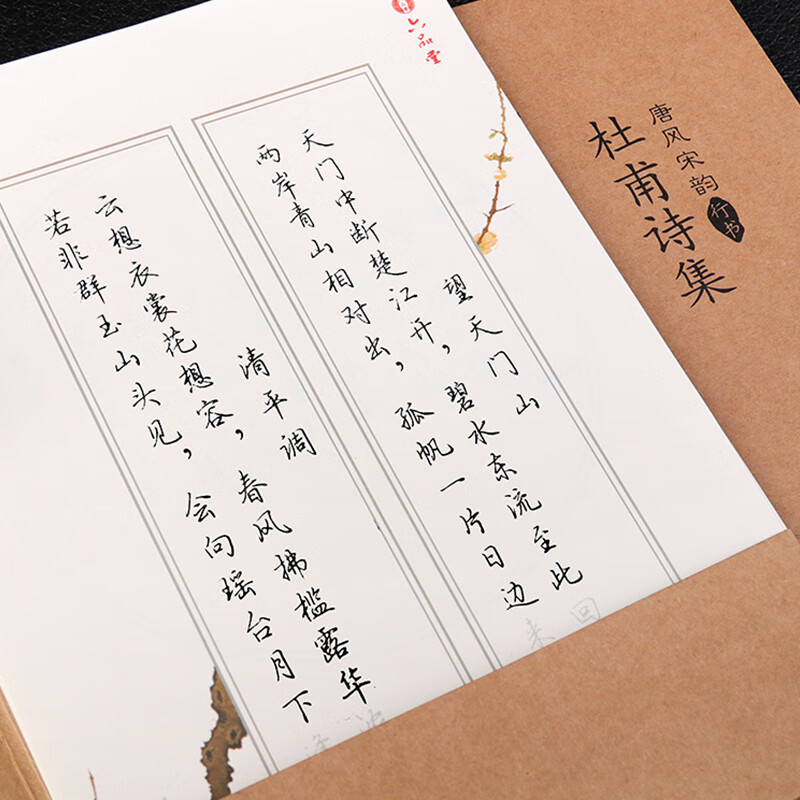 六品堂
唐风宋韵
杜甫诗集
行书
望天门山
天门中断楚江开，碧水东流至此回
两岸青山相对出，孤帆一片日边来
清平调
云想衣裳花想容，春风拂槛露华
若非群玉山头见，会向瑶台月下